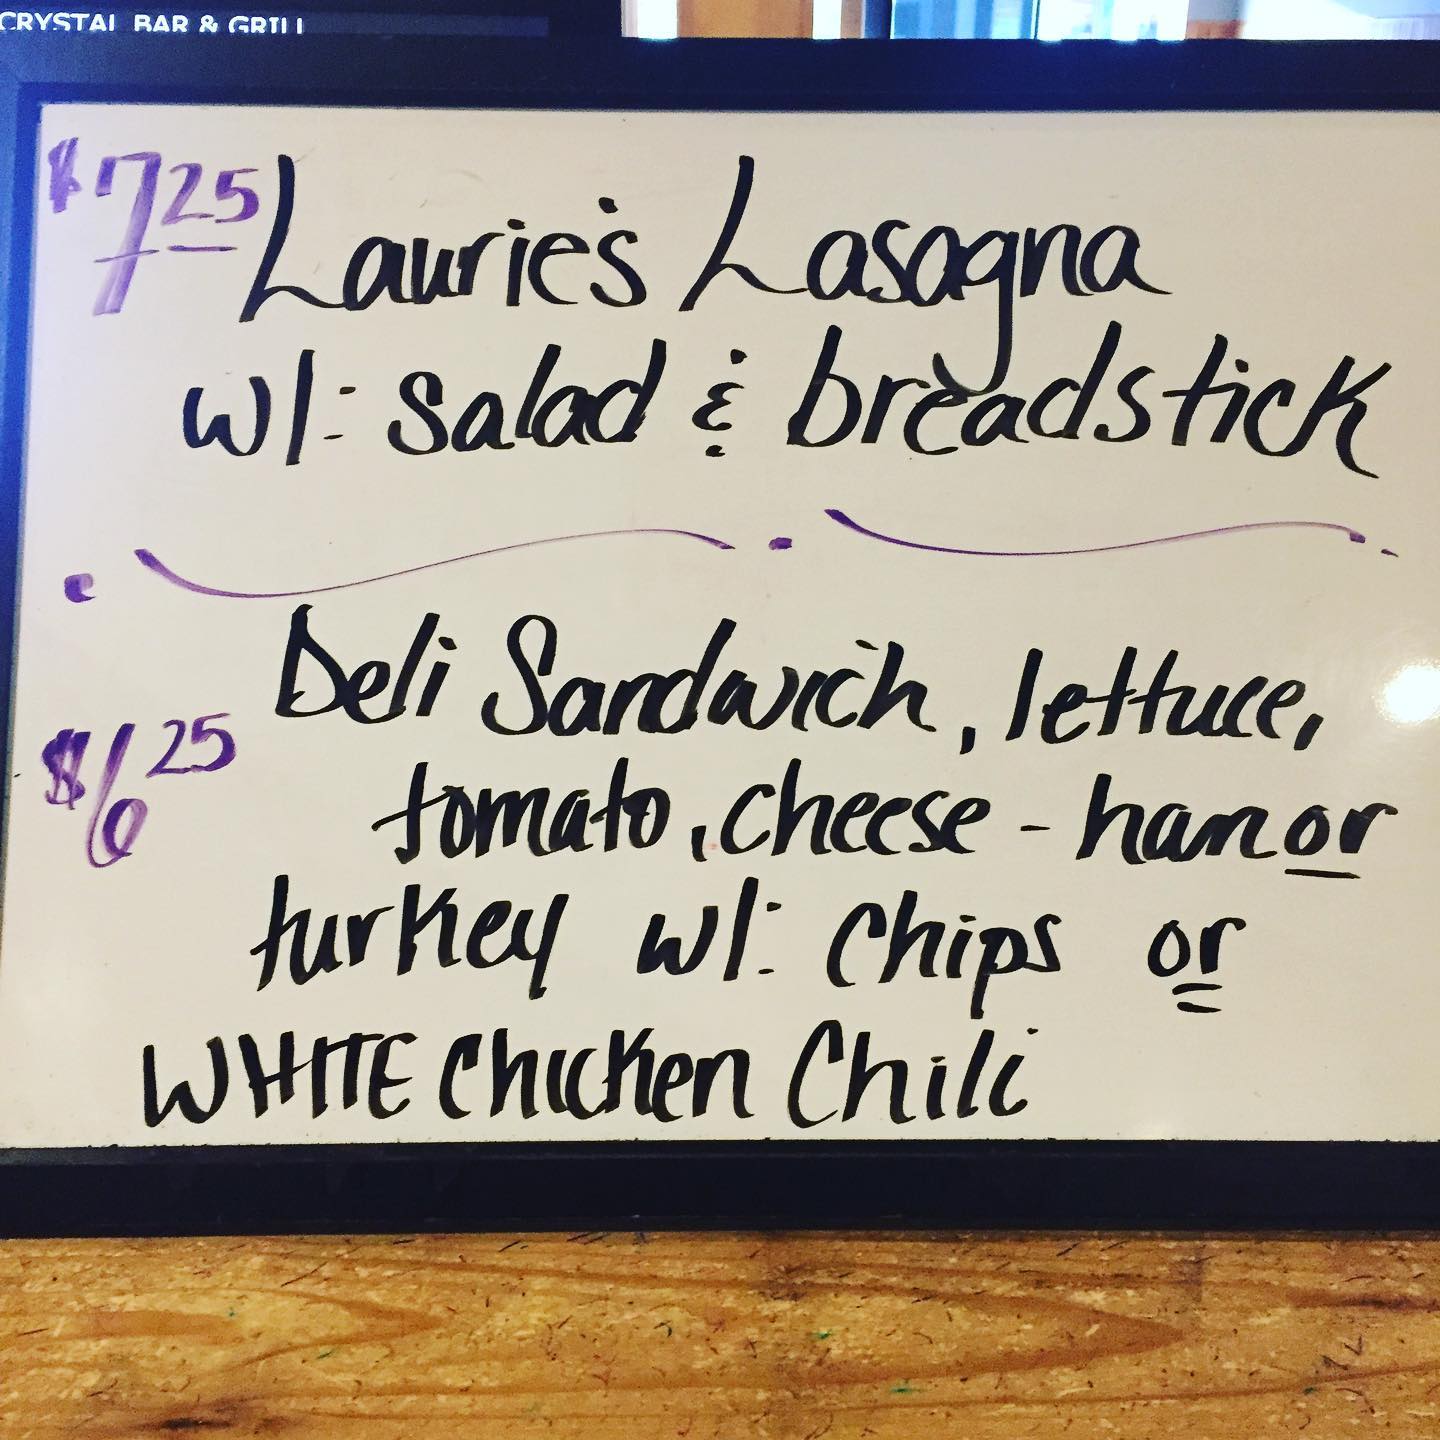 CRYSTAL BAR & GRILL
$7.25 Laurie's Lasagna
w/: salad & breadstick
Deli Sandwich, lettuce,
$6.25 tomato, cheese - ham or
turkey w/: chips or
WHITE Chicken Chili